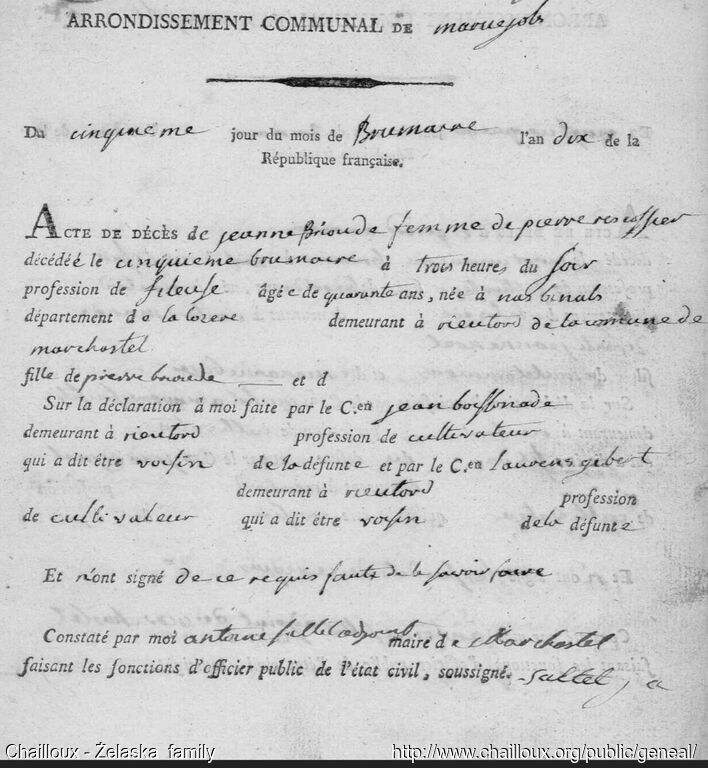 ARRONDISSEMENT COMMUNAL DE maruejols
Du cinquieme jour du mois de Brumaire l'an dix de la
République française.
ACTE DE DÉCÈS de jeanne Brioude femme de pierre rescossier
décédéé le cinquieme brumaire à trois heures du soir
profession de fileuse âgée de quarante ans, née à nasbinals
département de la lozere demeurant à rieutord de la comune de
marchastel
fille de pierre brioude et d
Sur la déclaration à moi faite par le C.en jean boissonade
demeurant à rieutord profession de cultivateur
qui a dit être voisin de la défunte et par le C.en laurens gibert
demeurant à rieutord profession
de cultivateur qui a dit être voisin de la défunte
Et n'ont signé de ce requis faute de le savoir faire
Constaté par moi antoine saltel adjoint maire de Marchastel
faisant les fonctions d'officier public de l'état civil, soussigné. saltel
Chailloux - Želaska family http://www.chailloux.org/public/geneal/